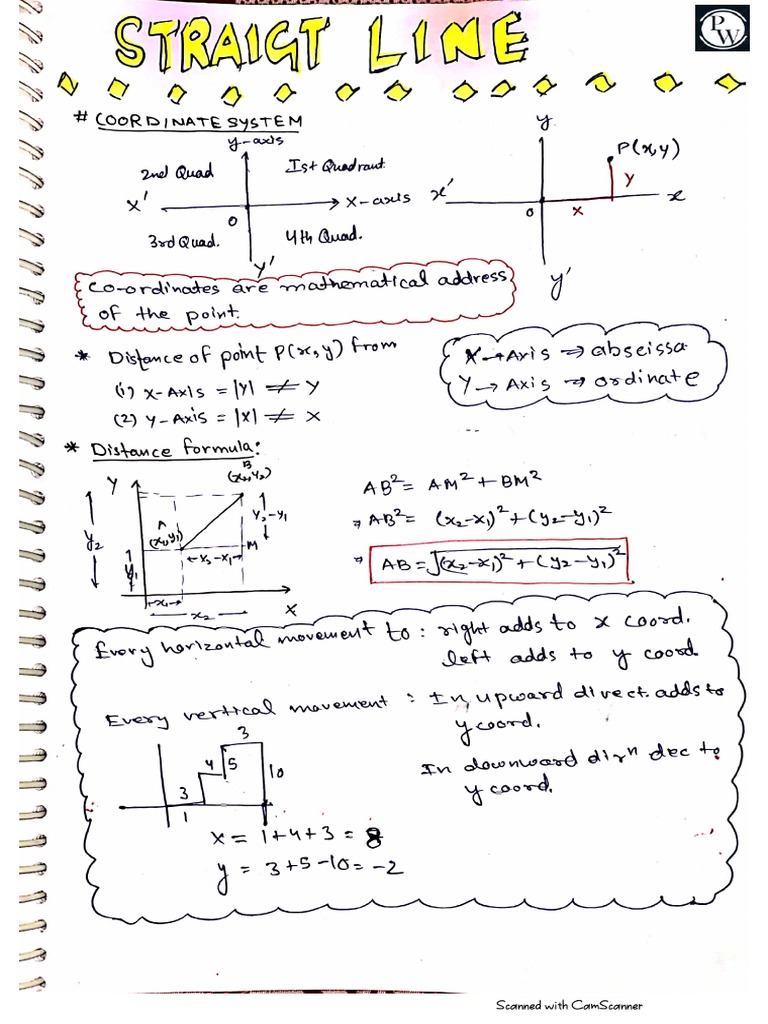 STRAIGT LINE
PW
# COORDINATE SYSTEM
y-axis
2nd Quad
Ist Quadrant
X'
O
X-axis
3rd Quad.
4th Quad.
Y'
y
P(x,y)
Y
x'
O
X
x
y'
Co-ordinates are mathematical address
of the point.
* Distance of point P(x,y) from
(1) X-Axis = |Y| ≠ Y
(2) Y-Axis = |X| ≠ X
X → Axis ⇒ abseissa
Y → Axis ⇒ ordinate
* Distance formula:
Y
B
(x₂,y₂)
A
(x₁,y₁)
y₂-y₁
y₂
x₂-x₁
M
y₁
x₁
x₂
X
AB² = AM² + BM²
⇒ AB² = (x₂-x₁)² + (y₂-y₁)²
⇒ AB = √(x₂-x₁)² + (y₂-y₁)²
Every horizontal movement to : right adds to x coord.
left adds to y coord
Every vertical movement : In upward direct. adds to
y coord.
In downward dirⁿ dec to
y coord.
3
4
5
10
3
1
x = 1+4+3 = 8
y = 3+5-10 = -2
Scanned with CamScanner